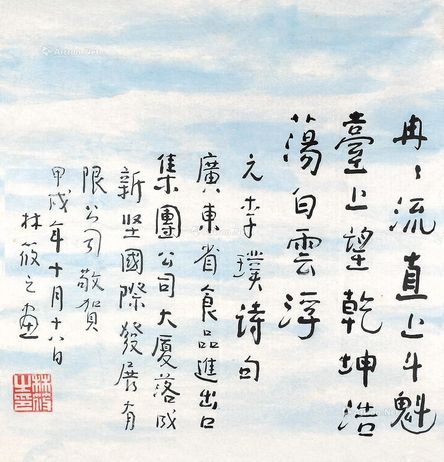 冉〻流直上斗魁
臺上望乾坤浩
蕩白雲浮
元李璞詩句
廣東省食品進出口
集團公司大厦落成
新坚國際發展有
限公司敬賀
甲戌年十月十八日
林筱之畫
林筱之印